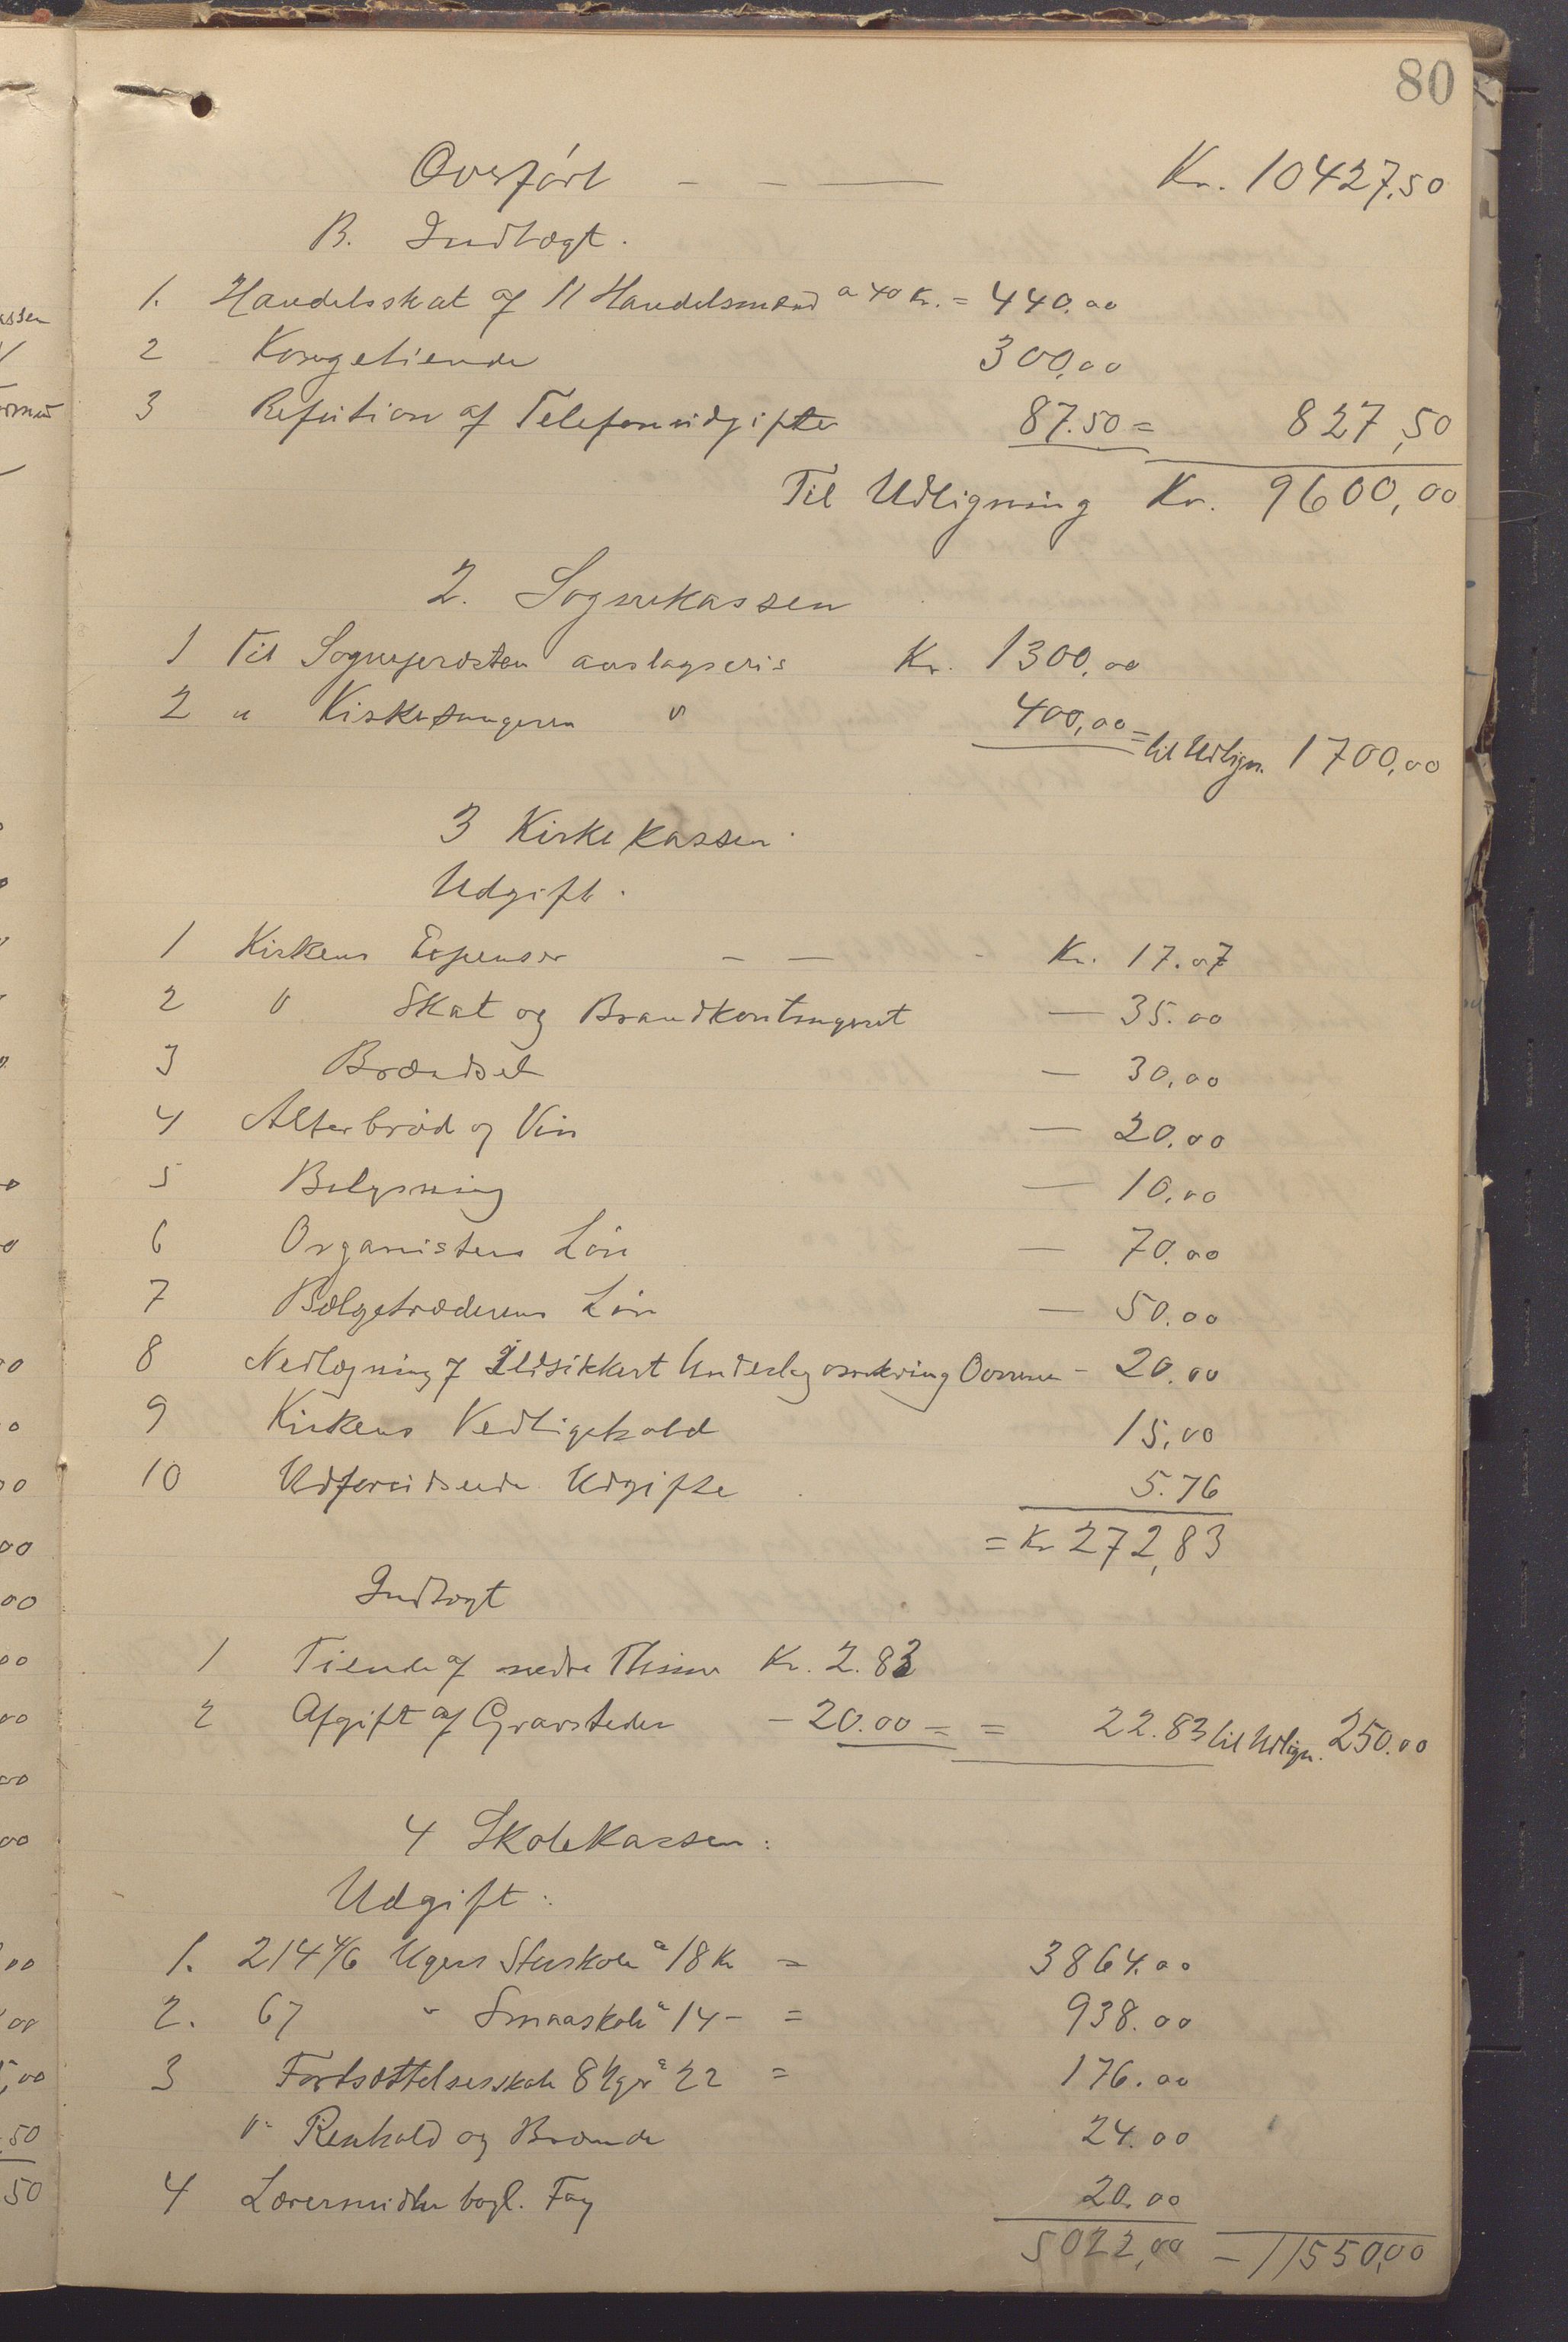 80
Overført - - — Kr. 10427,50
B. Indtægt.
1. Handelsskat af 11 Handelsmænd a 40 Kr. = 440.00
2 Kongetiende 300,00
3 Refution af Telefonudgifter 87.50 = 827,50
Til Udligning Kr. 9600,00
2. Sognekassen
1 Til Sognepræsten anslagsvis Kr. 1300,00
2 " Kirkesangeren " 400,00 = til Udlign. 1700,00
3 Kirkekassen.
Udgift.
1 Kirkens Expenser - — Kr. 17.07
2 " Skat og Brandkontingent — 35.00
3 Brændsel — 30,00
4 Alterbrød og Vin — 20,00
5 Belysning — 10,00
6 Organistens Løn — 70.00
7 Bælgetræderens Løn — 50.00
8 Nedlægning af Ildsikkert Underlag omkring Ovnen - 20.00
9 Kirkens Vedligehold 15,00
10 Uforudseede Udgifte 5.76
= Kr 272,83
Indtægt
1 Tiende af nedre Kr. 2.83
2 Afgift af Gravsteder - 20.00 = = 22.83 til Udlign. 250.00
4 Skolekassen:
Udgift:
1. 214 4/6 Ugers Storskole a 18 Kr = 3864.00
2. 67 " Smaaskole a 14 - = 938.00
3 Fortsættelsesskole 8 Uger a 22 = 176.00
" Renhold og Brænde 24.00
4 Lærermidler bogl. Fag 20.00
5022,00 - 11550,00